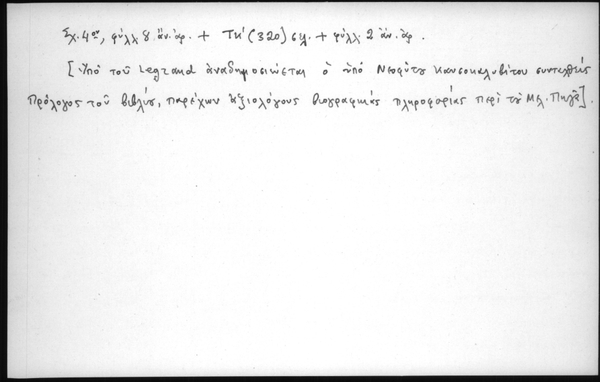 Σχ. 4ον, φύλλ. 8 ἄν. ἀρ. + τκ' (320) σελ. + φύλλ. 2 ἀν. ἀρ.
[Ὑπὸ τοῦ Legrand ἀναδημοσιεύεται ὁ ὑπὸ Νεοφύτου Καυσοκαλυβίτου συνταχθείς
Πρόλογος τοῦ βιβλίου, παρέχων ἀξιολόγους βιογραφικάς πληροφορίας περὶ τοῦ Μελ. Πηγᾶ].